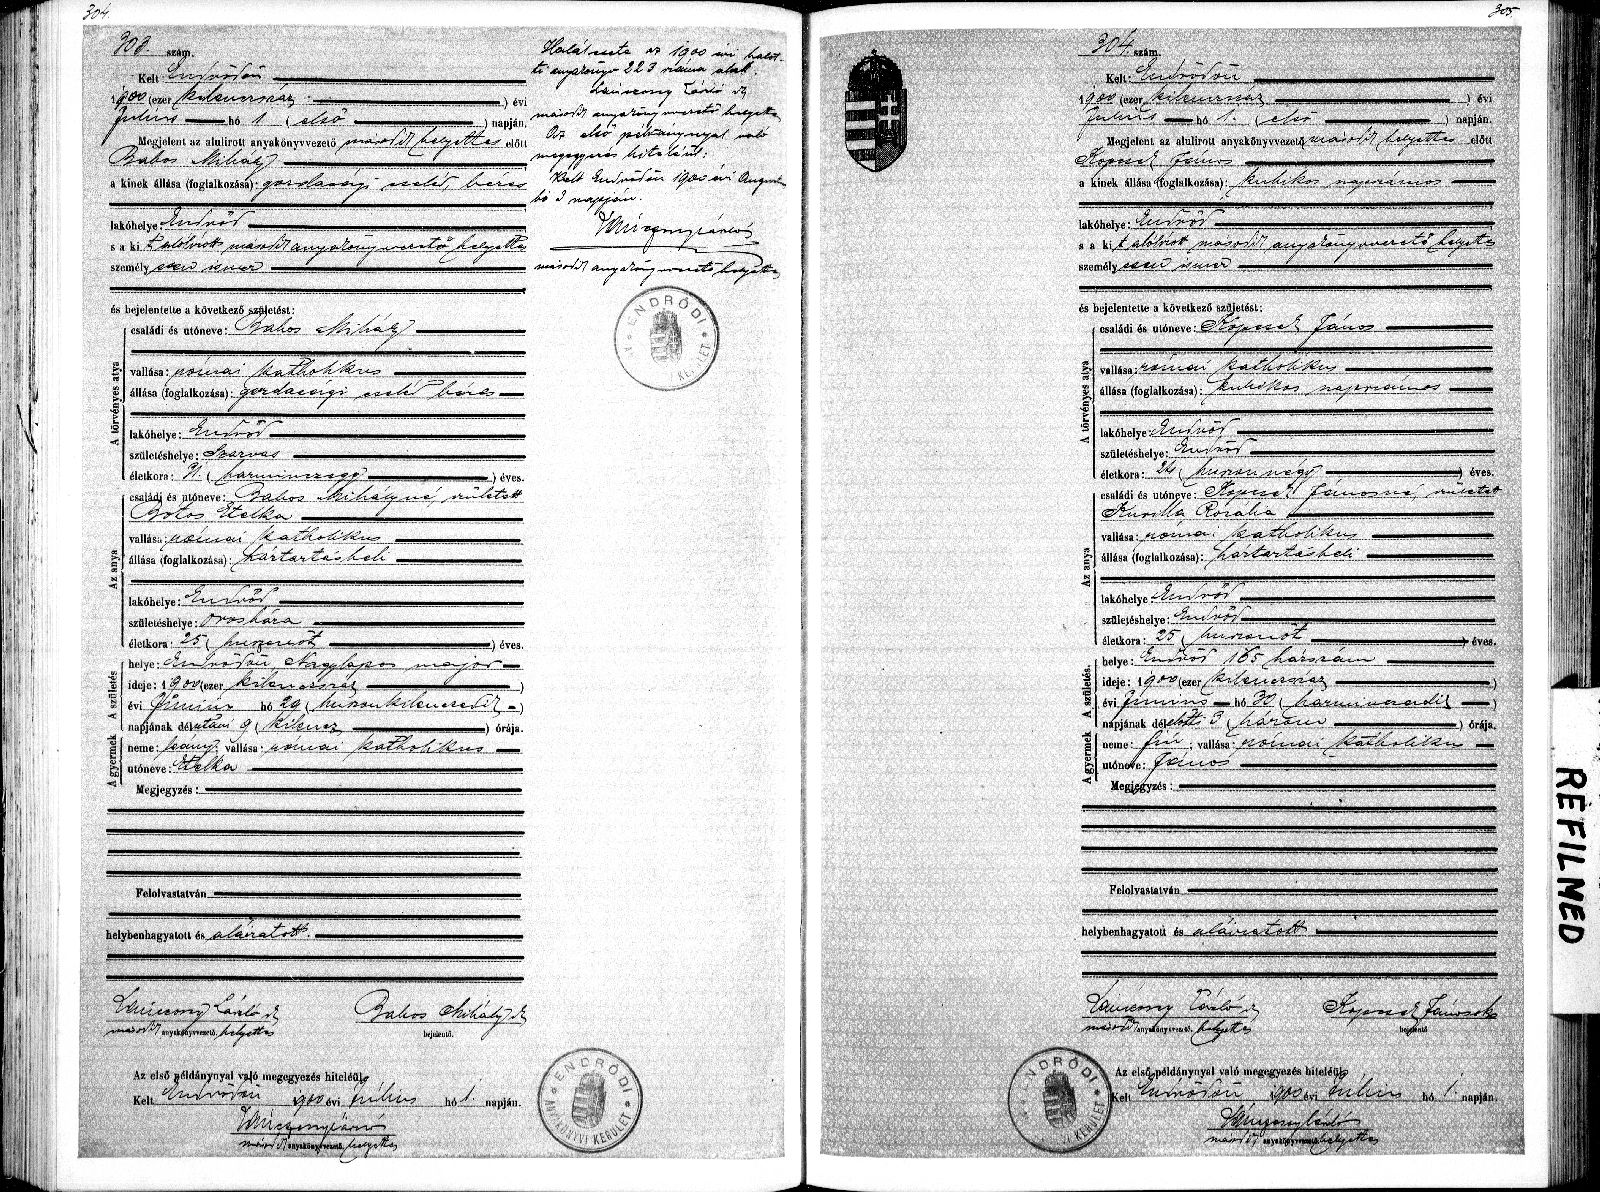 304.
303. szám.
Kelt Endrődön
1900 (ezer kilenczszáz ) évi
Julius hó 1. ( első ) napján.
Megjelent az alulirott anyakönyvvezető másodk helyettes előtt
Babos Mihály
a kinek állása (foglalkozása): gazdasági cseléd, béres
lakóhelye: Endrőd
s a kit alólirott másodk anyakönyvvezető helyettes
személyesen ismer
és bejelentette a következő születést:
A törvényes atya
családi és utóneve: Babos Mihály
vallása: római katholikus
állása (foglalkozása): gazdasági cseléd béres
lakóhelye: Endrőd
születéshelye: Szarvas
életkora: 31. ( harminczegy ) éves.
Az anya
családi és utóneve: Babos Mihályné, született
Botos Etelka
vallása: római katholikus
állása (foglalkozása): háztartásbeli
lakóhelye: Endrőd
születéshelye: Orosháza
életkora: 25 ( huszonöt ) éves.
A születés
helye: Endrődön, Nagylapos major
ideje: 1900 (ezer kilenczszáz )
évi Junius hó 29 ( huszonkilenczedik )
napjának délutáni 9 ( kilencz ) órája.
A gyermek
neme: leány; vallása: római katholikus
utóneve: Etelka
Megjegyzés:
Felolvastatván
helybenhagyatott és aláiratott.
Babos Mihály sk
másodk anyakönyvvezető, helyettes
bejelentő.
Az első példánynyal való megegyezés hiteléül
Kelt Endrődön 1900 évi Julius hó 1. napján.
másodk anyakönyvvezető helyettes
ENDRŐDI ANYAKÖNYVI KERÜLET
Halálesete az 1900 évi halot-
ti anyakönyv 223 száma alatt.
másodk anyakönyvvezető helyettes
Az első példánynyal való
megegyezés hiteléül:
Kelt Endrődön 1900 évi Augusztus
hó 3 napján.
másodk anyakönyvvezető helyettes
ENDRŐDI KERÜLET
305.
304. szám.
Kelt: Endrődön
1900 (ezer kilenczszáz ) évi
Julius hó 1. ( első ) napján.
Megjelent az alulirott anyakönyvvezető másodk helyettes előtt
Kopcsek János
a kinek állása (foglalkozása): kubikos napszámos
lakóhelye: Endrőd
s a kit alólirott másodk anyakönyvvezető helyettes
személyesen ismer
és bejelentette a következő születést:
A törvényes atya
családi és utóneve: Kopcsek János
vallása: római katholikus
állása (foglalkozása): kubikos napszámos
lakóhelye: Endrőd
születéshelye: Endrőd
életkora: 24 ( huszonnégy ) éves.
Az anya
családi és utóneve: Kopcsek Jánosné, született
Kurilla Rozália
vallása: római katholikus
állása (foglalkozása): háztartásbeli
lakóhelye: Endrőd
születéshelye: Endrőd
életkora: 25 ( huszonöt ) éves.
A születés.
helye: Endrőd 165 házszám
ideje: 1900 (ezer kilenczszáz )
évi Junius hó 30 ( harminczadik )
napjának délelőtti 3 ( három ) órája.
A gyermek
neme: fiu; vallása: római katholikus
utóneve: János
Megjegyzés:
Felolvastatván
helybenhagyatott és aláiratott
Kopcsek János sk
másodk anyakönyvvezető, helyettes
bejelentő
Az első példánynyal való megegyezés hiteléül
Kelt Endrődön 1900 évi Julius hó 1. napján.
másodk anyakönyvvezető helyettes
ENDRŐDI ANYAKÖNYVI KERÜLET
REFILMED